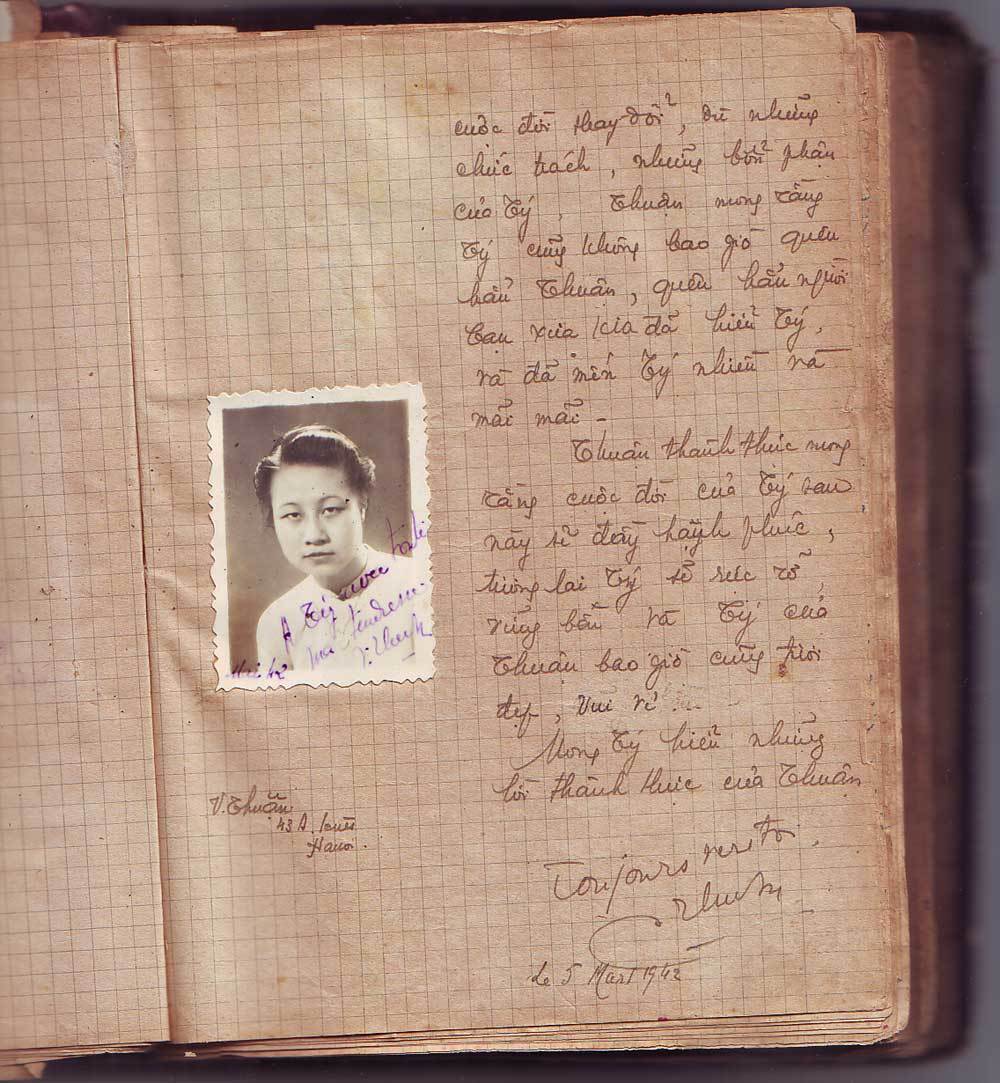 cuộc đời thay đổi, dù những
chức trách, những bổn phận
của Tý, Thuận mong rằng
Tý cũng không bao giờ quên
hẳn Thuận, quên hẳn người
bạn xưa kia đã hiểu Tý,
và đã mến Tý nhiều và
mãi mãi -
Thuận thành thực mong
rằng cuộc đời của Tý sau
này sẽ đầy hạnh phúc,
tương lai Tý sẽ rực rỡ,
vững bền và Tý của
Thuận bao giờ cũng tươi
đẹp, vui vẻ.
Mong Tý hiểu những
lời thành thực của Thuận
Toujours vers toi,
Thuận
Le 5 Mars 1942
A Tý avec toute
ma tendresse
V. Thuận
42
V. Thuận
43 A.
Hanoi.